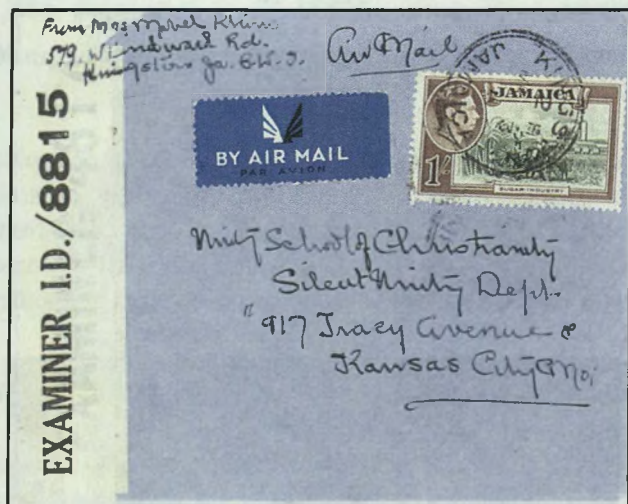 From Mrs Mabel
579. Windward Rd.
Kingston Ja. B.W.I.
Air Mail
EXAMINER I.D./8815
BY AIR MAIL
PAR AVION
JAMAICA
1/-
SUGAR INDUSTRY
Unity School of Christianity
Silent Unity Dept.
917 Tracy Avenue
Kansas City Mo.